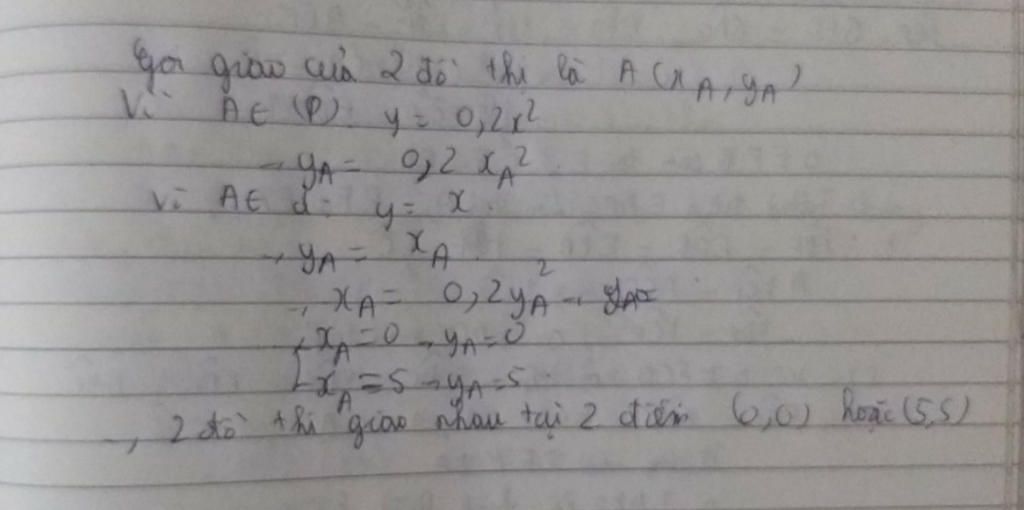 Gọi giao của 2 đồ thị là A(x_A, y_A)
Vì A∈ (P): y = 0,2x²
→ y_A = 0,2 x_A²
Vì A∈ d: y = x.
→ y_A = x_A
→ x_A = 0,2y_A² → y_A=
[ x_A = 0 → y_A = 0
[ x_A = 5 → y_A = 5
→ 2 đồ thị giao nhau tại 2 điểm (0,0) hoặc (5,5)